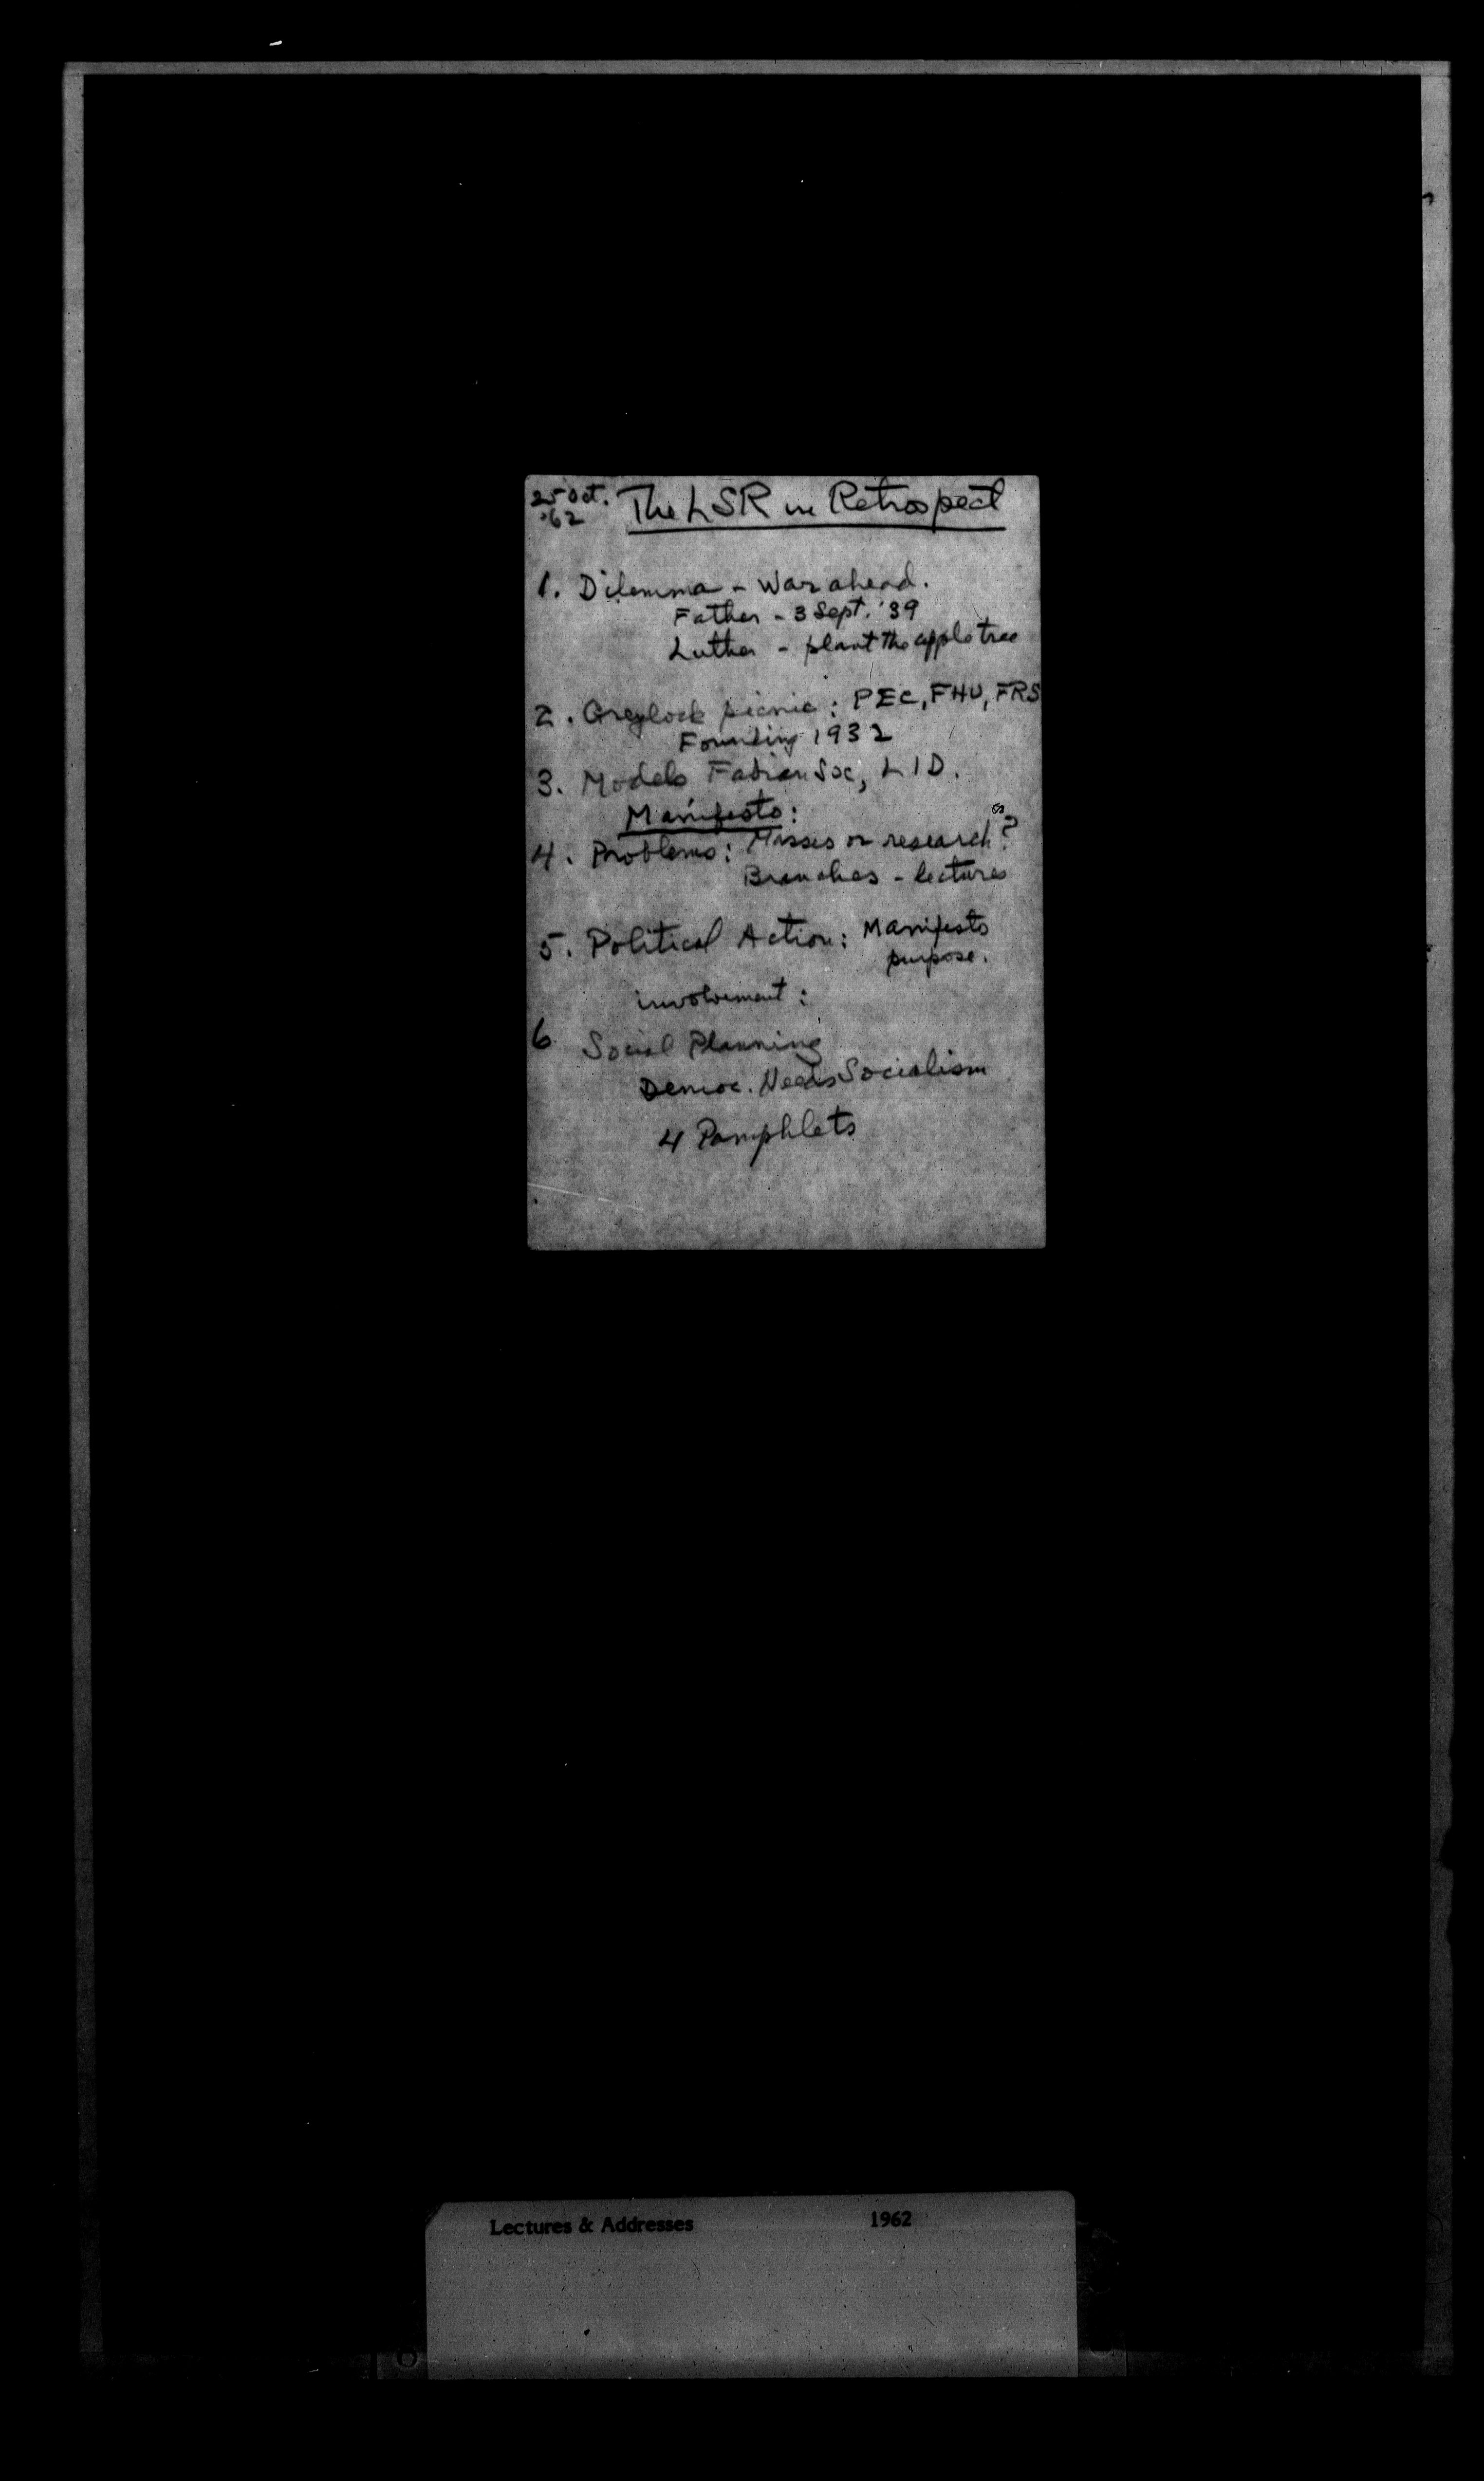 25 Oct. '62 The LSR in Retrospect
1. Dilemma - War ahead.
Father - 3 Sept. '39
Luther - plant the apple tree
2. Greylock picnic: PEC, FHU, FRS
Founding 1932
3. Models Fabian Soc, LID.
Manifesto:
4. Problems: Masses or research?
Branches - lectures
5. Political Action: Manifesto
purpose.
involvement:
6 Social Planning
Democ. Needs Socialism
4 Pamphlets
Lectures & Addresses 1962